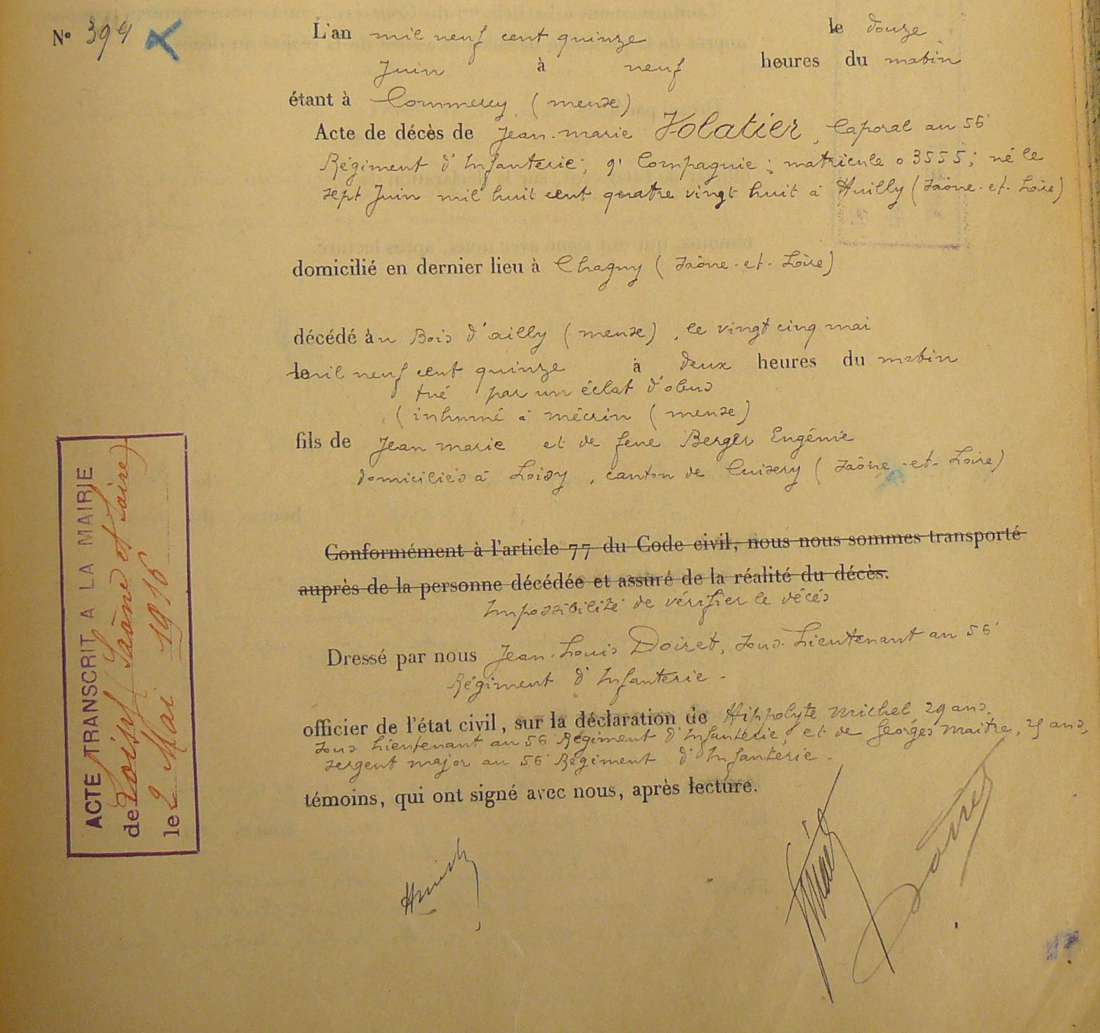 N° 394
L'an mil neuf cent quinze le douze
Juin à neuf heures du matin
étant à Commercy (meuse)
Acte de décès de Jean-marie Volatier, Caporal au 56e
Régiment d'Infanterie; 9e Compagnie; matricule 03555; né le
sept Juin mil huit cent quatre vingt huit à Huilly (Saône-et-Loire)
domicilié en dernier lieu à Chagny (Saône-et-Loire)
décédé au Bois d'ailly (meuse), le vingt cinq mai
mil neuf cent quinze à deux heures du matin
tué par un éclat d'obus
(inhumé à mécrin (meuse)
fils de Jean marie et de feue Berger Eugénie
domiciliés à Loisy, canton de Cuisery (Saône-et-Loire)
Conformément à l'article 77 du Code civil, nous nous sommes transporté
auprès de la personne décédée et assuré de la réalité du décès.
Impossibilité de vérifier le décés
Dressé par nous Jean-Louis Doiret, Sous-Lieutenant au 56e
Régiment d'Infanterie.
officier de l'état civil, sur la déclaration de Hippolyte michel 29 ans,
sous Lieutenant au 56e Régiment d'Infanterie, et de Georges maitre, ans,
sergent major au 56e Régiment d'Infanterie.
témoins, qui ont signé avec nous, après lecture.
ACTE TRANSCRIT A LA MAIRIE
de Loisy (Saône et Loire)
le 2 Mai 1916